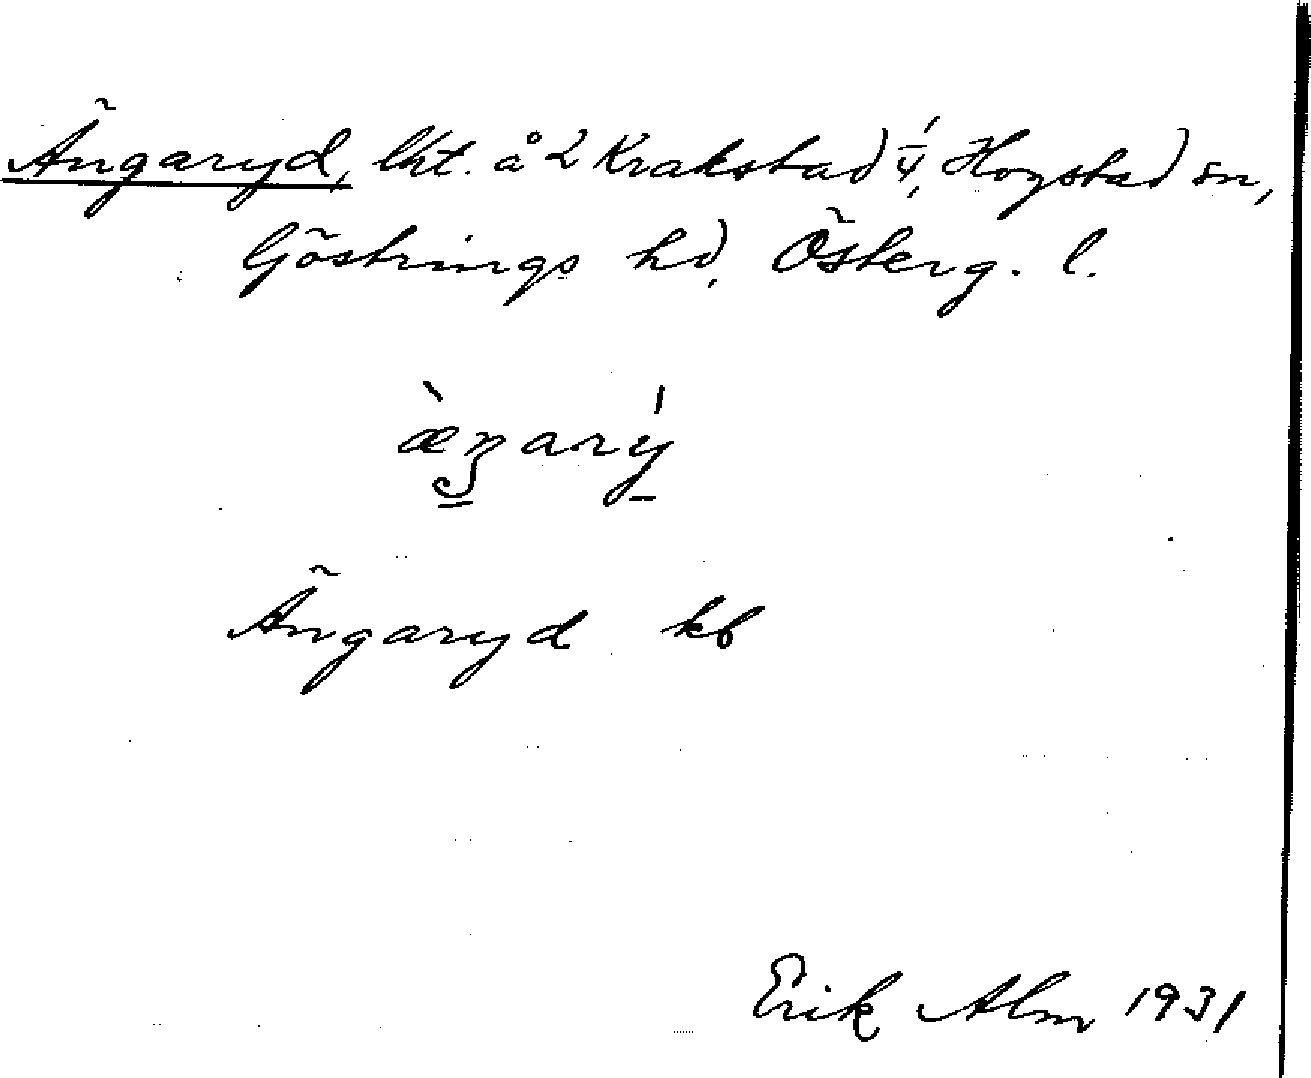 Ängaryd, lht. å 2 Krakstad 1/4, Hogstad sn,
Göstrings hd, Österg. l.
Ängaryd kb
Erik Alm 1931